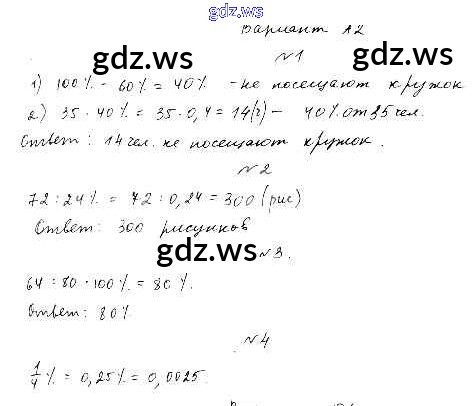 gdz.ws
Вариант А2
gdz.ws
gdz.ws
№1
1) 100% - 60% = 40% - не посещают кружок
2) 35 · 40% = 35 · 0,4 = 14(ч) - 40% от 35 чел.
Ответ: 14 чел. не посещают кружок.
№2
72 : 24% = 72 : 0,24 = 300 (рис)
Ответ: 300 рисунков
gdz.ws
№3.
64 : 80 · 100% = 80%.
Ответ: 80%
gdz.ws
№4
1/4% = 0,25% = 0,0025.